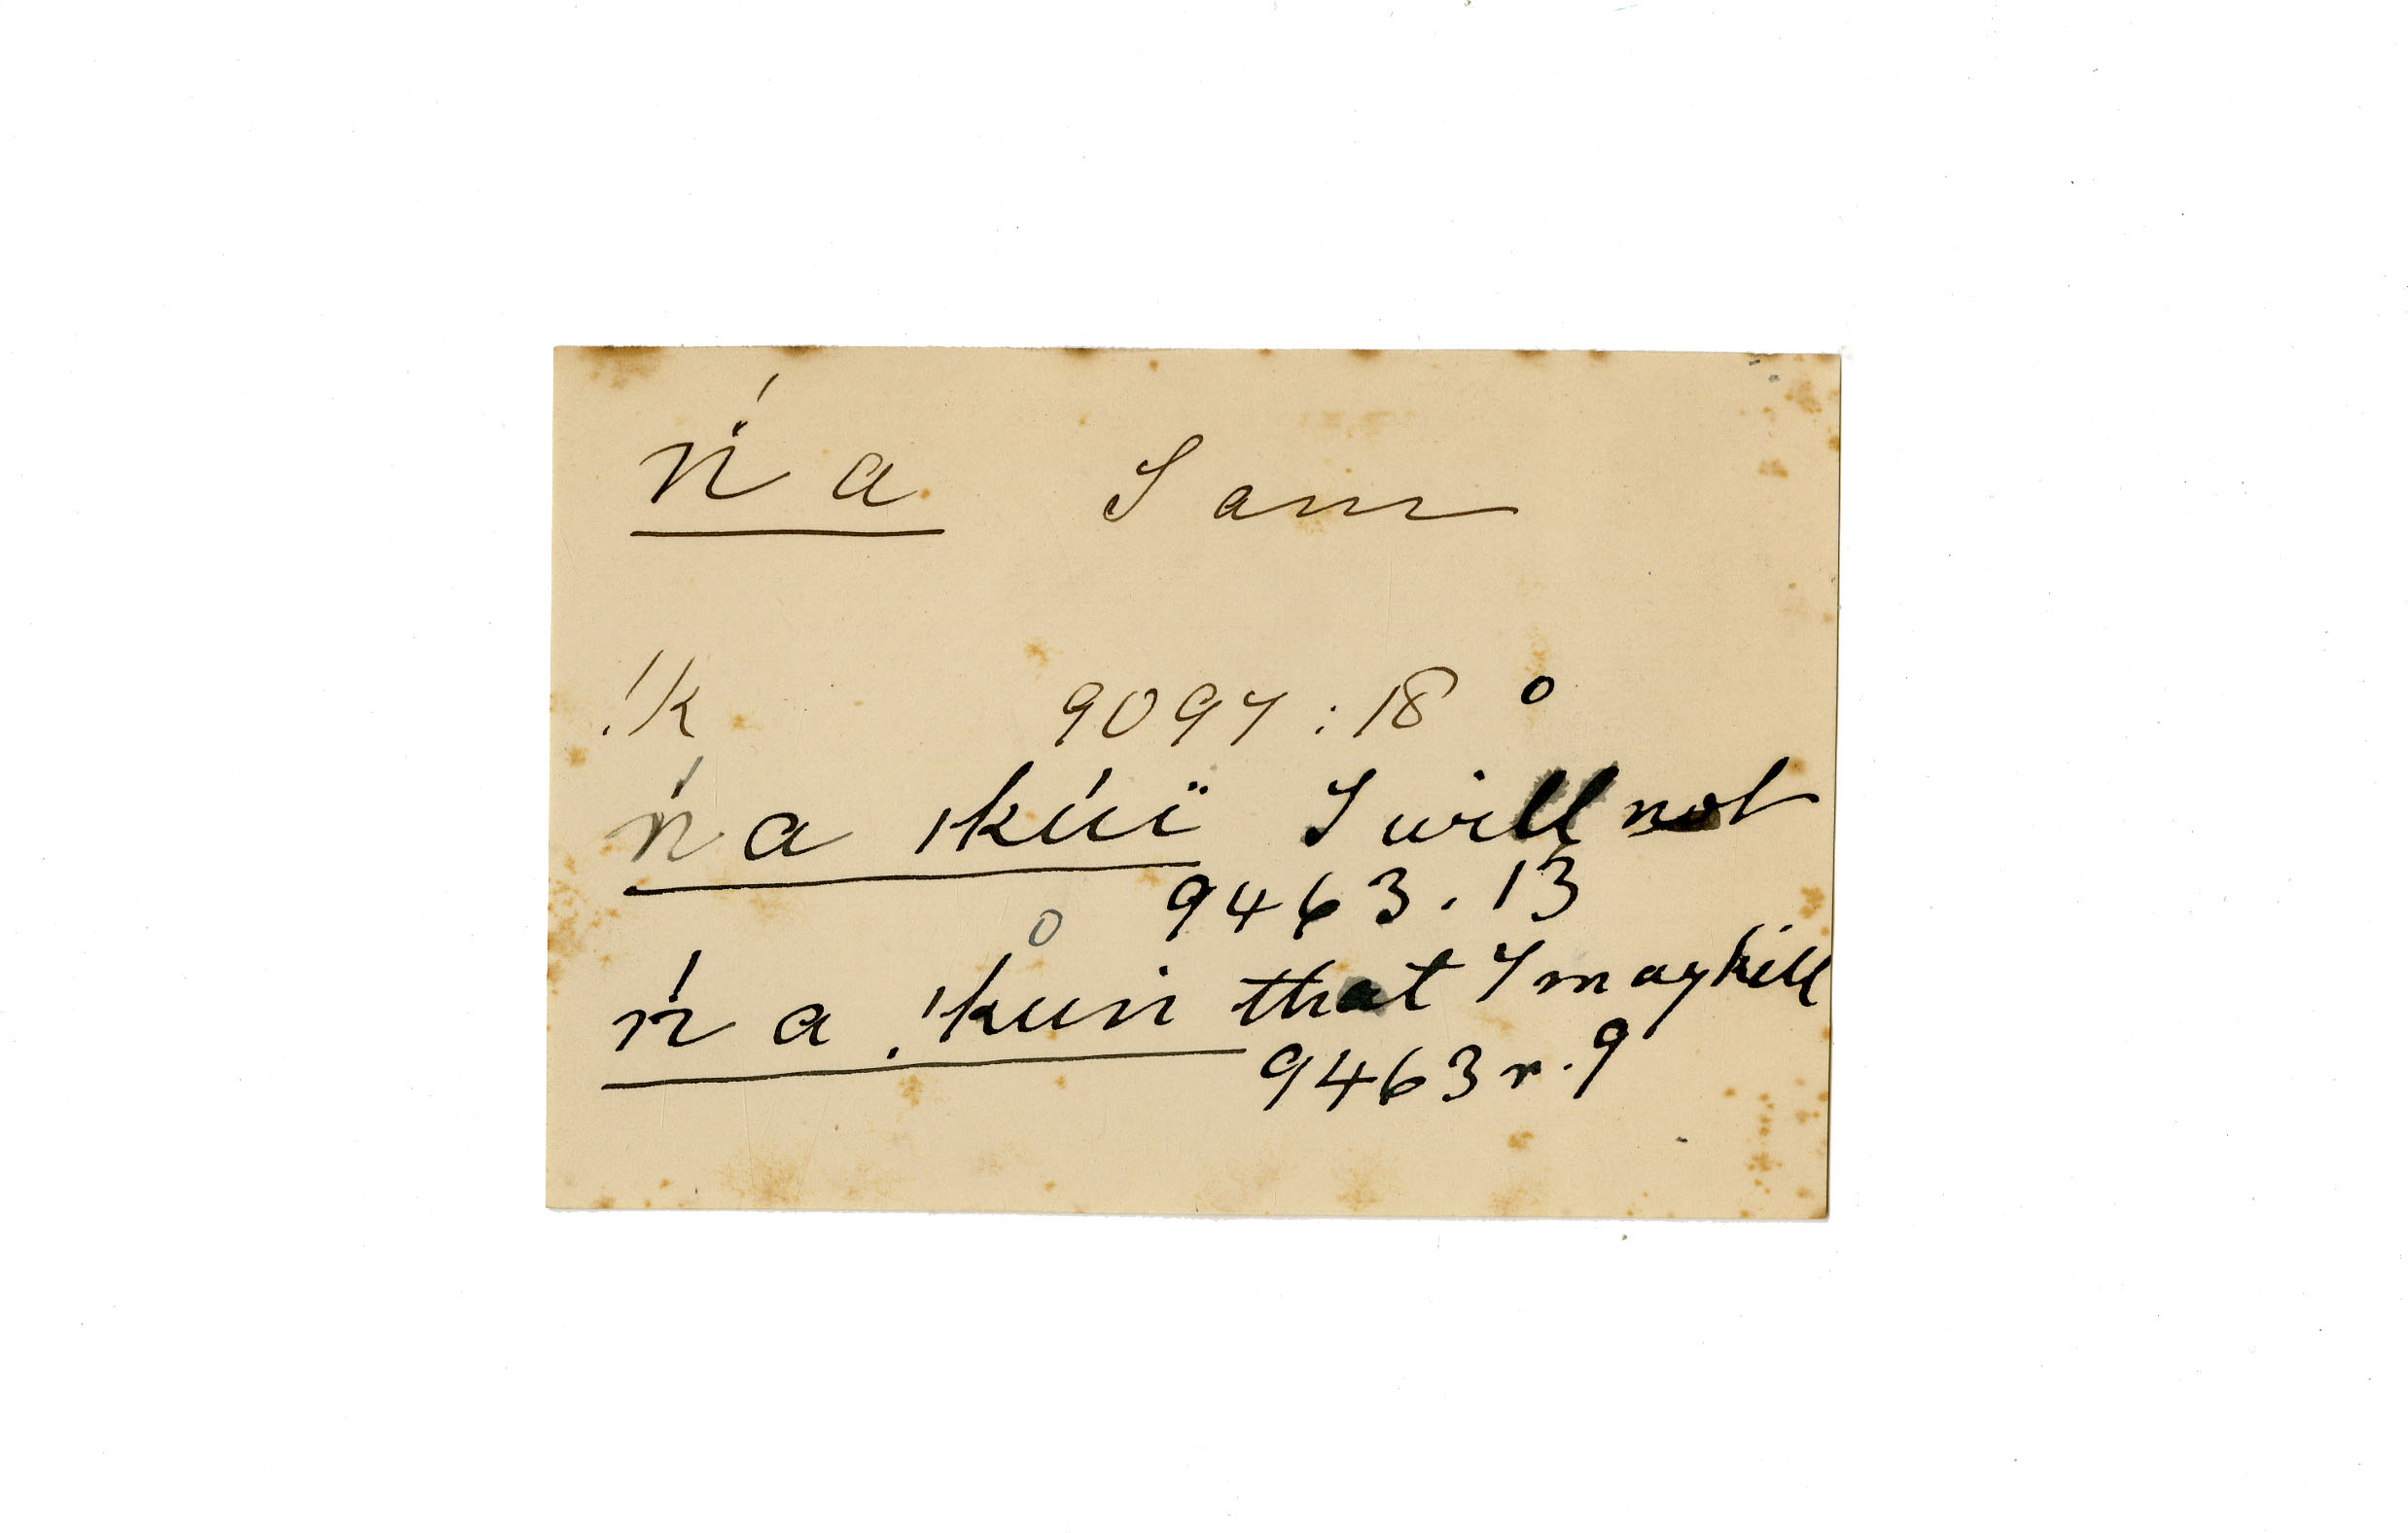 ń̇ a I am
!k 9097 : 18 o
ń̇ a ıkúï I will not
9463 . 13
o
ń̇ a !kuṅ that I may kill
9463 r. 9